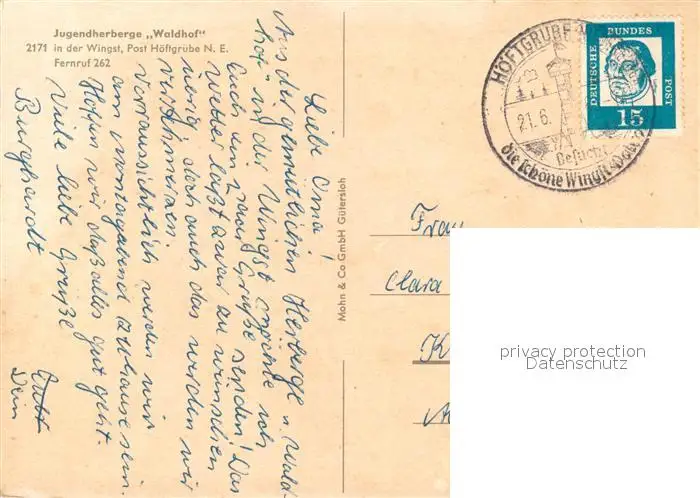 Jugendherberge „Waldhof"
2171 in der Wingst, Post Höftgrube N. E.
Fernruf 262
Liebe Oma!
Aus der gemütlichen Herberge „Wald-
hof" in der Wingst möchte ich
Euch ein paar Grüße senden! Das
Wetter läßt zwar zu wünschen
übrig, doch auch das werden wir
verschmerzen.
Voraussichtlich werden wir
am Montagabend zuhause sein.
Hoffen wir daß alles gut geht.
Viele liebe Grüße
Dein
Burghardt
Mohn & Co GmbH Gütersloh
HÖFTGRUBE
21.6.
Besucht
die schöne Wingst
DEUTSCHE
BUNDES
POST
15
Frau
Clara
K
privacy protection
Datenschutz